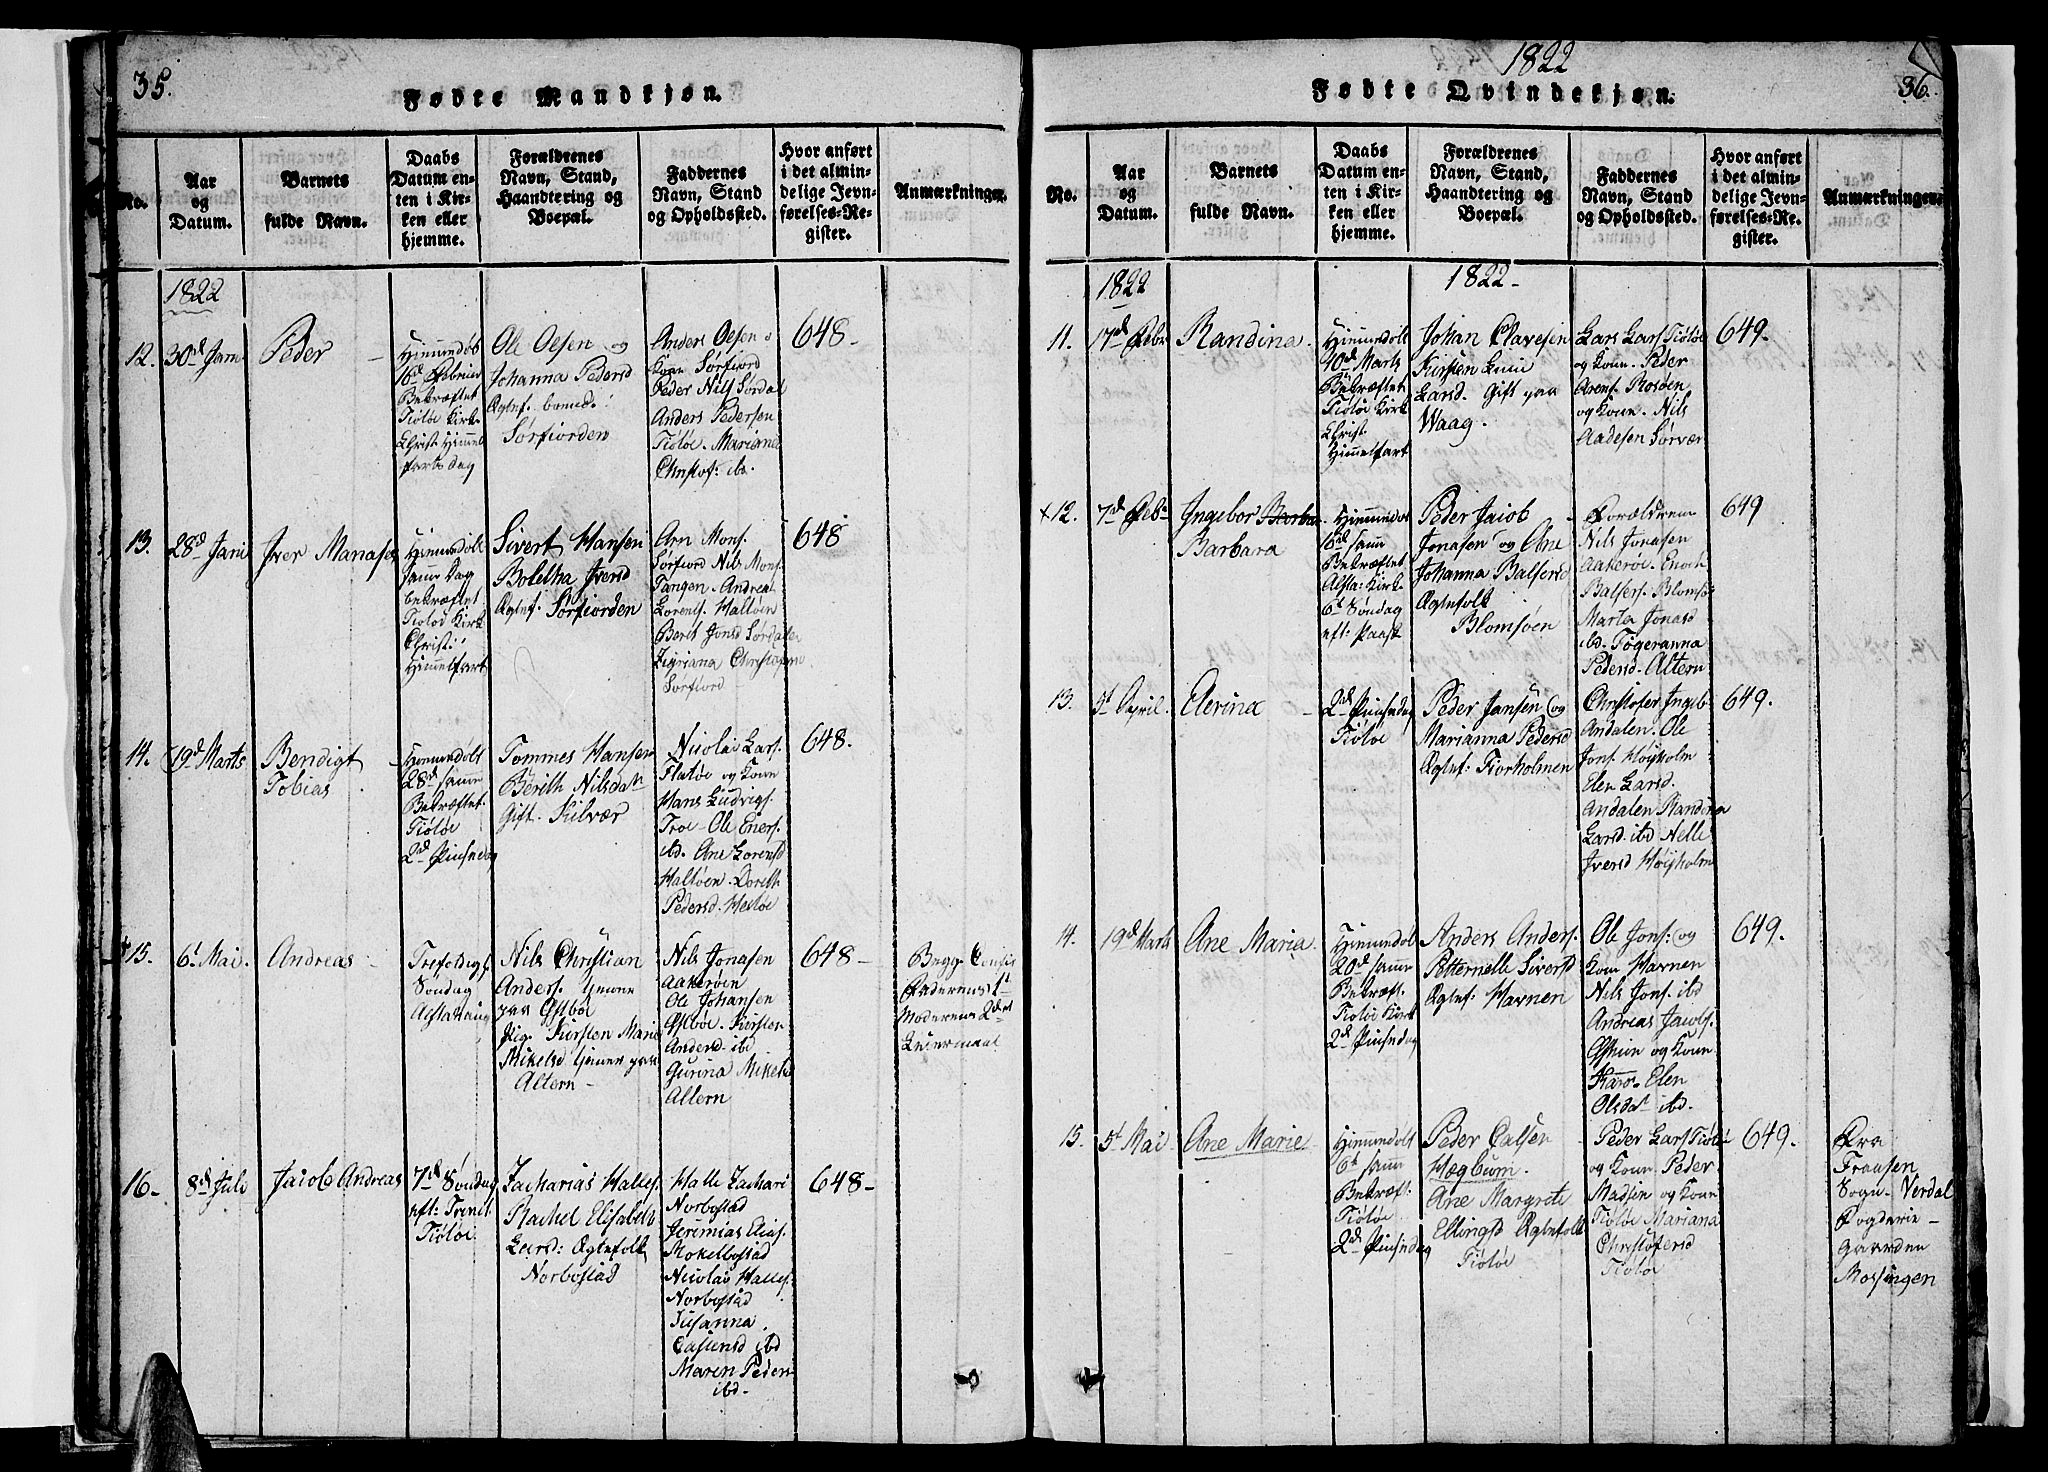 35.
Fødte Mandkjøn.
No.
Aar
og
Datum.
Barnets
fulde Navn.
Daabs
Datum en-
ten i Kir-
ken eller
hjemme.
Forældrenes
Navn, Stand,
Haandtering og
Boepæl.
Faddernes
Navn, Stand
og Opholdssted.
Hvor anført
i det almin-
delige Jevn-
førelses-Re-
gister.
Anmærkninger.
1822
12.
30d Jan
Peder
Hiemmedøb
16d Februer
Bekræftet
Tiøtøe Kirk
Christ: Himmel
farts dag
Ole Oesen og
Johanna Pedersd
Egtef. boend.
Sørfiorden
Anders Oesen
Kone Sørfiord
Peder Nils Sørdal
Anders Pedersen
Tiøtøe. Mariana
Christof: ibd.
648
13.
28d Jan
Iver Manases
Hiemmedøbt
samme Dag
bekræftet
Tiøtøe Kirk
Christi:
Himmelfart
Sivert Hansen
Bolelha Iversd
Egtef. Sørfiorden
Arn Mons.
Sørfiord Nils Mons.
Tangen. Andreas
Lorents. Haltøen
Berit Jonsd Sørdalen
Zipriana Christophers
Sørfiord
648
14.
19d Marts
Bendigt
Tobias
Hiemmedøbt
28d samme
Bekræftet.
Tiøtøe
2d Pinsedag
Tommes Hansen
Berith Nilsdat
Gift. Kilvær
Nicolai Lars.
Flatøe og Kone
Hans Ludvigs.
Troe Ole Eners.
ibd. Ane Lorensd
Haltøen. Dorith
Pedersd. Hestøe
648.
15.
6t Mai
Andreas
Trefoldigh
Søndag
Alstahoug
Nils Christian
Anders. Hiemme
paa Østbøe
Pig. Kirsten Marie
Mikelsd hiemme paa
Altern
Nils Jonasen
Aakerøen
Ole Johansen
Østbøe. Kirsten
Andersd ibd
Gurina Mikelsd
Altern
648
Begge Confir
Faderens 1st
Moderens 2det
Leiermaal
16
8d Juli
Jacob Andreas
7d Søndag
eft: Trenit
Tiøtøe.
Zacharias Halles.
Rachel Elisabeth
Larsd: Egtefolk
Norbostad
Halle Zachari
Norbostad
Jeremias Elias.
Mokelbostad
Nicolai Halles.
Norbostad
Susanna
Caslensd ibd
Maren Peders
ibd.
648
1822
Fødte Qvindekjøn.
36.
No.
Aar
og
Datum.
Barnets
fulde Navn.
Daabs
Datum en-
ten i Kir-
ken eller
hjemme.
Forældrenes
Navn, Stand,
Haandtering og
Boepæl.
Faddernes
Navn, Stand
og Opholdssted.
Hvor anført
i det almin-
delige Jevn-
førelses-Re-
gister.
Anmærkninger.
1822
1822
11.
17d Febr
Randina
Hiemmedøbt
10d Marts
Bekræftet
Tiøtøe Kirk
Christ
Himmelfart
Johan Clavesen
Kirsten
Larsd. Gift paa
Waag.
Lars Lars Tiøtøe
og Kone. Peder
Arens. Rosøen
og Kone. Nils
Aadesen Sørvær
649.
x12.
7d Feb
Ingebor Barba
Barbara
Hiemmedøbt
16d samme
Bekræftet
Alsta: Kirk
6t Søndag
eft: Paask
Peder Jacob
Jonasen og Ane
Johanna Balsersd
Egtefolk
Blomsøen
Forældrene
Nils Jonasen
Aakerøe. Enoch
Balsers. Blomsø
Marta Jonasd
ibd. Tøgeranna
Pedersd. Altern
649
13.
3t April.
Elerina
2d Pinsedag
Tiøtøe
Peder Jansen og
Marianna Pedersd
Egtef: Tiorholmen
Christofer Ingeb.
Andalen. Ole
Jons. Høyholm
Elen Larsd.
Andalen Randina
Larsd. ibd Nelle
Iversd Høyholm
649.
14.
19d Marts
Ane Maria
Hiemmedøb
20d samme
Bekræft.
Tiøtøe Kirk
2d Pinsedag
Anders Anders.
Petternelle Siversd
Egtef: Havnen
Ole Jons: og
Kone Havnen
Nils Jons. ibd
Andreas Jacobs.
og Kone
Elen
Olsdat ibd.
649.
15.
5t Mai
Ane Marie
Hiemmedøbt
6t samme
Bekræft:
Tiøtøe
2d Pinsedag
Peder Calsen
Hægbum.
Ane Margrete
Ellingsd Egtefolk
Tiøtøe
Peder Lars Tiøtøe
og Kone. Peder
Madsen og Kone
Tiøtøe Mariana
Christofersd
Tiøtøe
649.
Fra
Fraasen
Sogn. Verdal
Fogderie
Gaarden
Mossingen